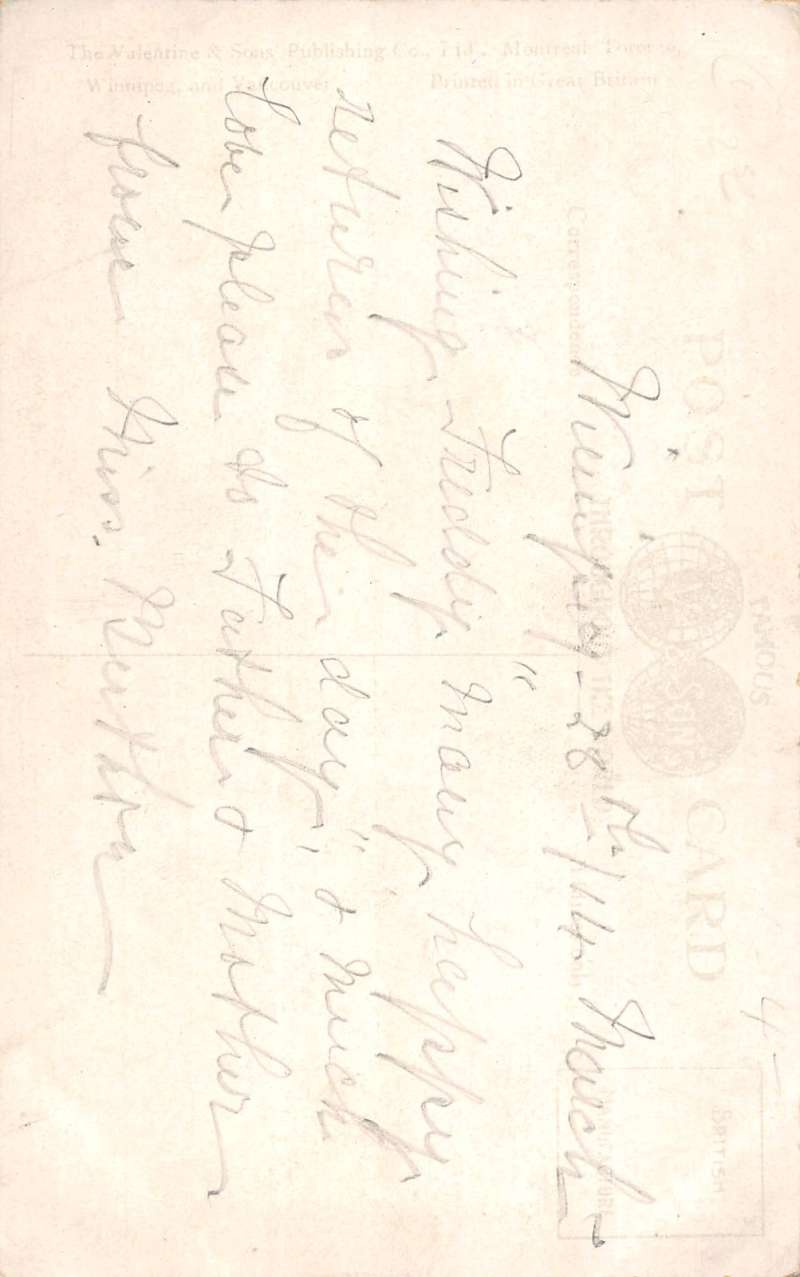 The Valentine & Sons Publishing Co., Ltd., Montreal, Toronto,
Winnipeg, and Vancouver
Printed in Great Britain
POST CARD
FAMOUS
Correspondence
BRITISH
4-
Winnipeg - 28th/14 March -
Wishing Freddy "many happy
return of the day", & much
love please to Father & Mother
from Miss.